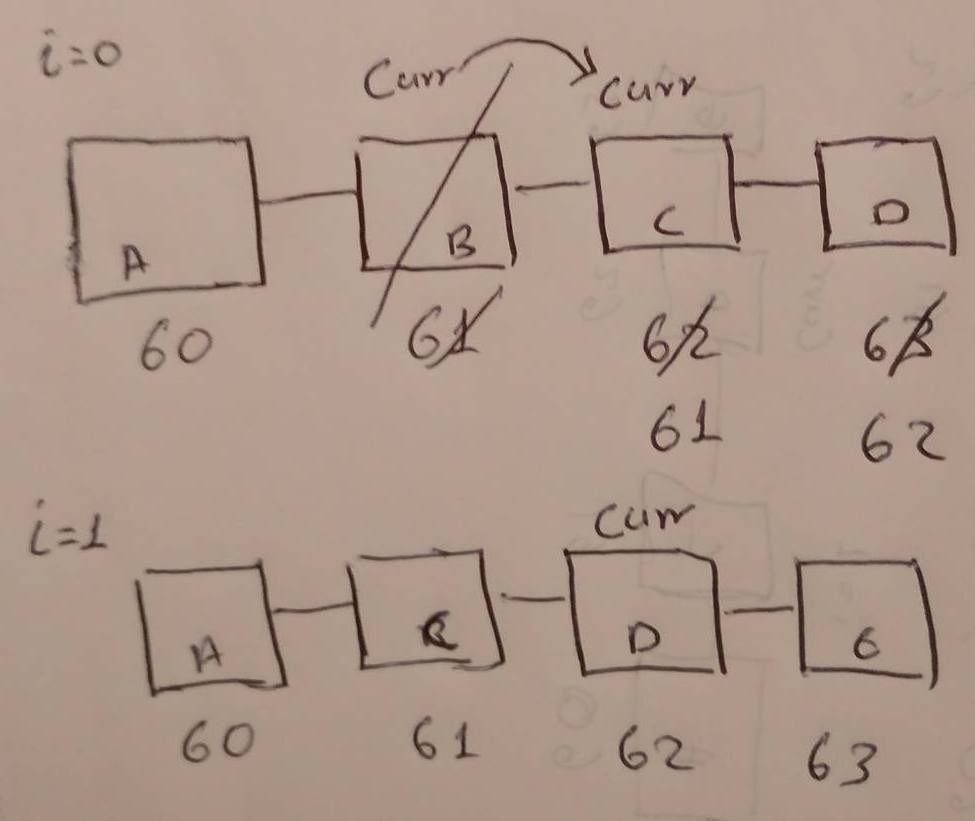 i=0
Curr Curr
A B C D
60 61 62 63
61 62
i=1
Curr
A C D 6
60 61 62 63